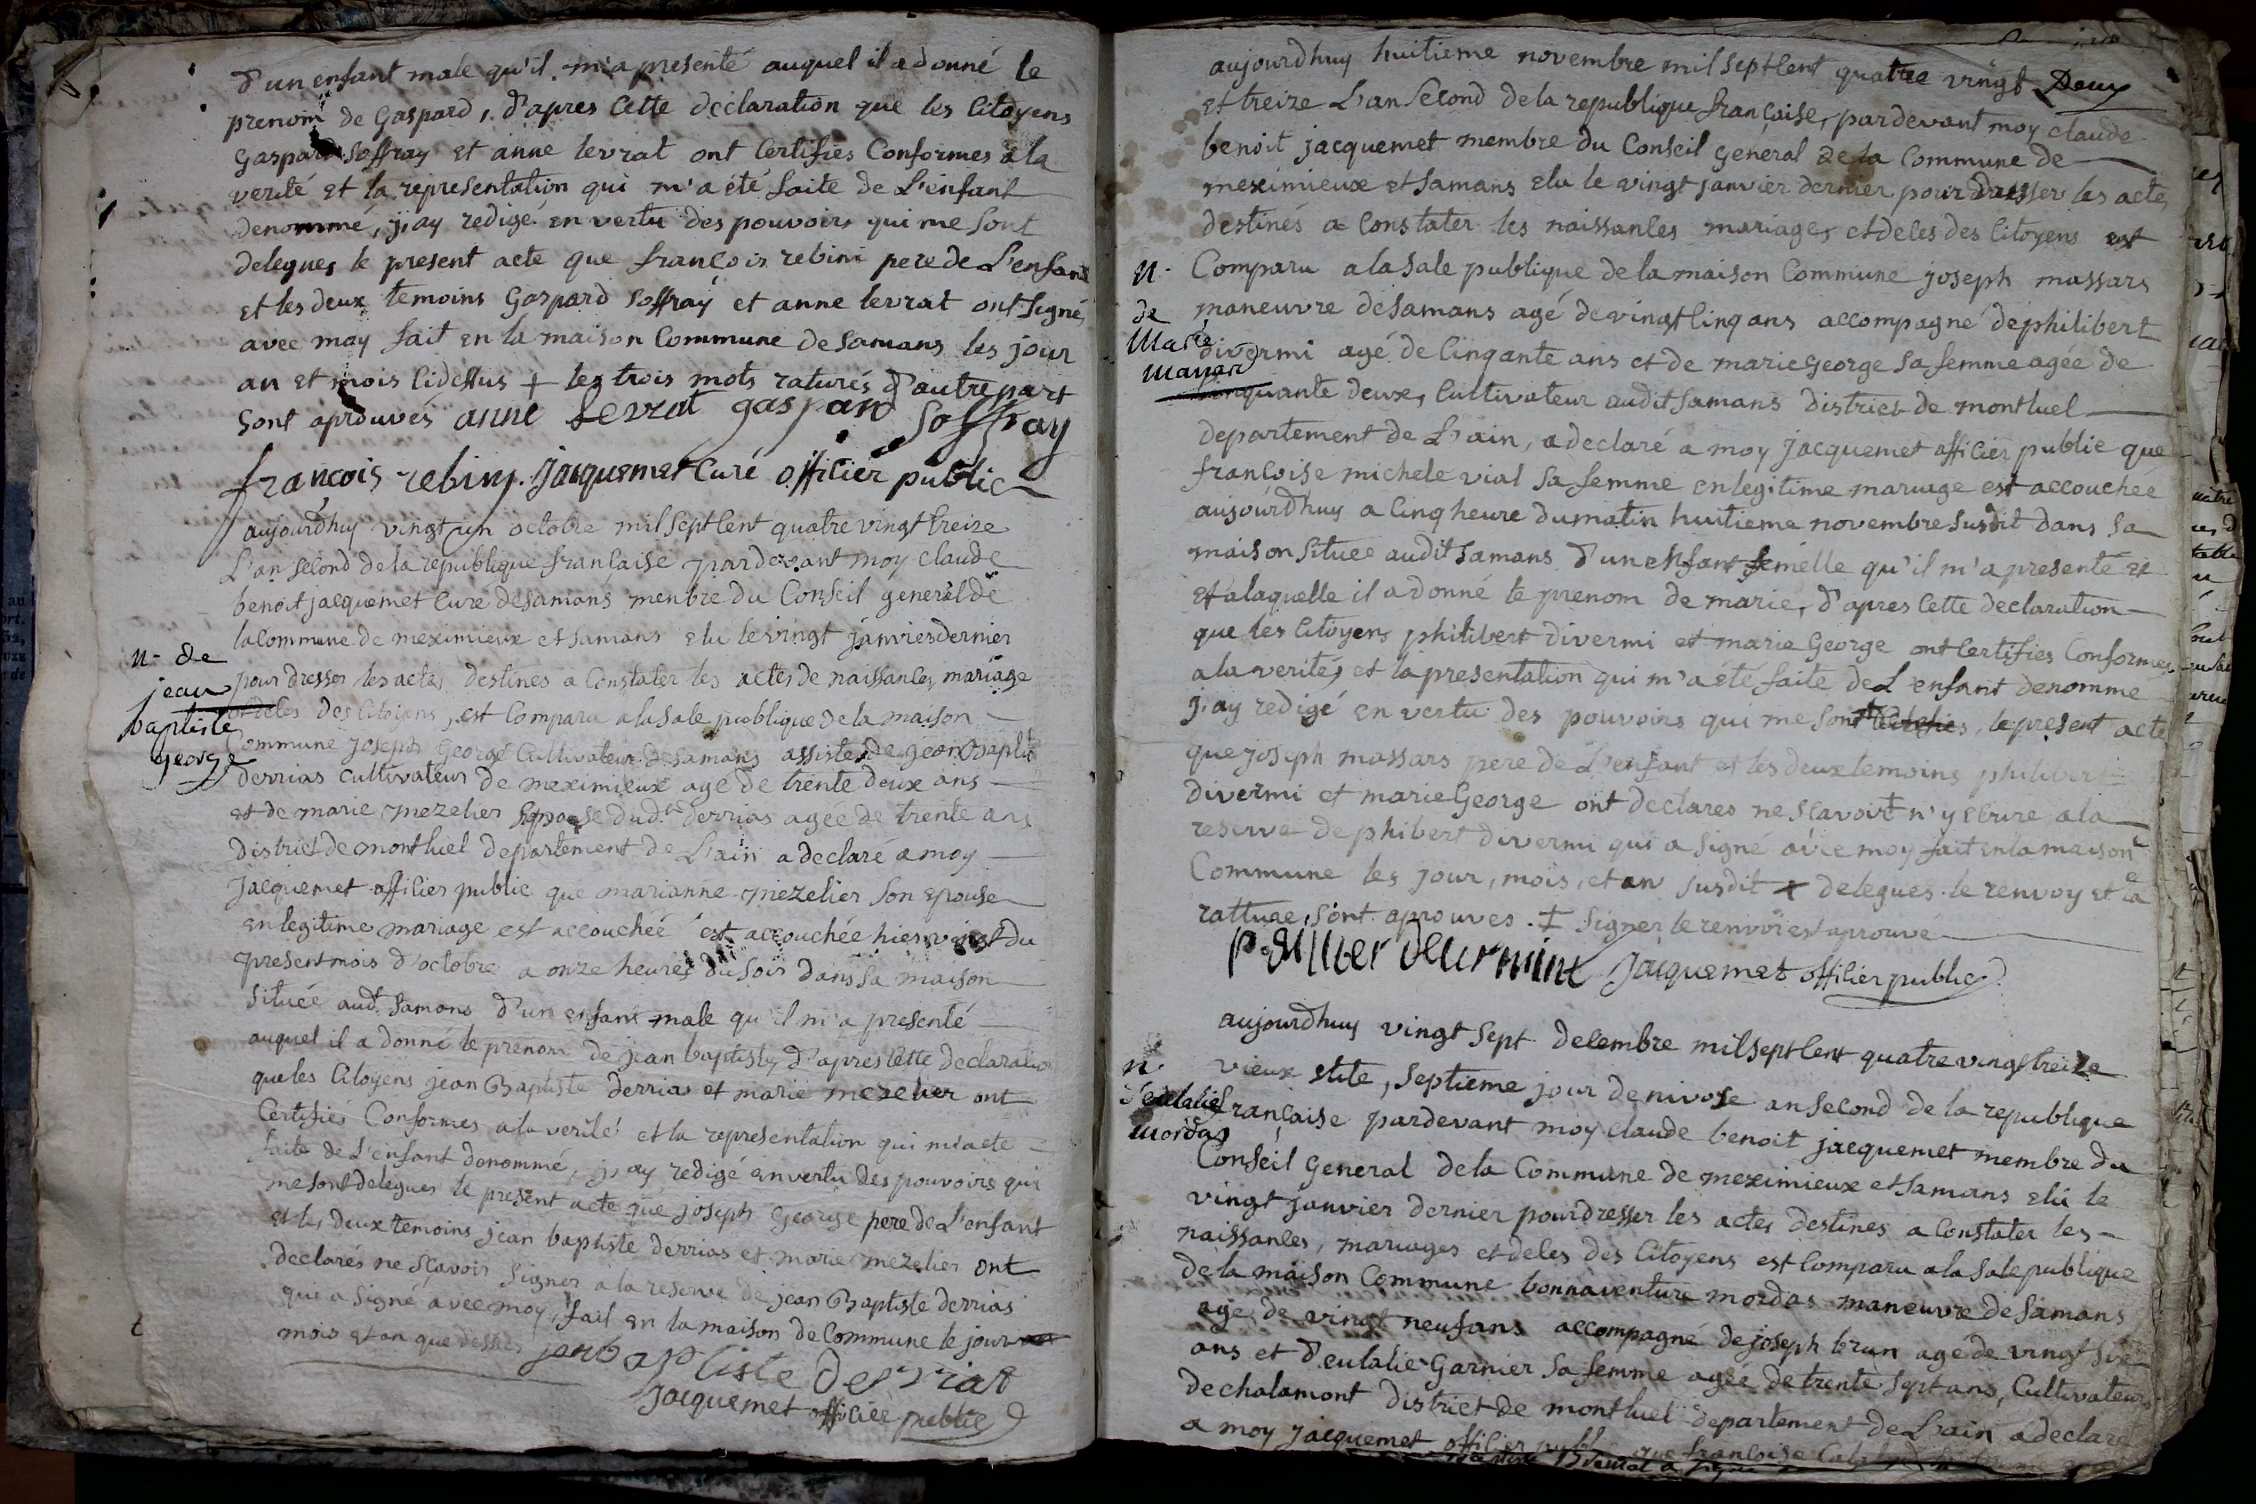 d'un enfant male qu'il m'a presenté auquel il a donné le
prenom de Gaspard, d'apres cette declaration que les citoyens
Gaspard Soffray et anne levrat ont certifies conformes a la
verité et la representation qui m'a été faite de L'enfant
denommé, j'ay redigé en vertu des pouvoirs qui me sont
delegues le present acte que françois rebini pere de L'enfant
et les deux temoins Gaspard Soffray et anne levrat ont signé
avec moy fait en la maison commune de Samans les jour
an et mois cidessus + les trois mots raturés d'autre part
sont aprouvés anne levrat gaspar Soffray
francois rebiny. Jacquemet curé officier public
aujourdhuy vingt un octobre mil sept cent quatre vingt treize
L'an second de la republique française pardevant moy claude
benoit jacquemet curé de samans menbre du Conseil general de
la Commune de meximieux et samans elu le vingt janvier dernier
n. de
jean
baptiste
george
pour dresser les actes destines a constater les actes de naissances mariage
et deces des citoyens, est comparu a la sale publique de la maison
commune joseph George cultivateur de samans assisté de jean Baptiste
derrias cultivateur de meximieux age de trente deux ans
et de marie mezelier epouse dud.t derrias agée de trente ans
district de montluel departement de L'ain a declaré a moy
Jacquemet officier public que marianne mezelier son epouse
en legitime mariage est accouchée est accouchée hier vingt du
present mois d'octobre a onze heures du soir dans sa maison
située aud. Samans d'un enfant male qu'il m'a presenté
auquel il a donné le prenom de jean baptiste, d'apres cette declaration
que les citoyens jean Baptiste derrias et marie mezelier ont
certifiés conformes a la verité et la representation qui m'a eté
faite de L'enfant donommé, j'ay redigé en vertu des pouvoirs qui
me sont delegues le present acte que joseph George pere de L'enfant
et les deux temoins jean baptiste derrias et marie mezelier ont
declarés ne sçavoir signer a la reserve de jean Baptiste derrias
que a signé avec moy, fait en la maison de commune le jour
mois et an que dessus jan baptiste derriat
Jacquemet officier public
aujourdhuy huitieme novembre mil sept cent quatre vingt Deux
et treize L'an second de la republique française, pardevant moy claude
benoit jacquemet membre du Conseil general de la Commune de
meximieux et samans elu le vingt janvier dernier pour dresser les actes
destinés a constater les naissances mariages et deces des citoyens est
n.
de
Marie
Comparu a la sale publique de la maison commune joseph massars
maneuvre de samans agé de vingt cinq ans accompagné de philibert
divermi agé de cinqante ans et de marie george sa femme agée de
cinquante deux, cultivateur audit samans district de montluel
departement de L'ain, a declaré a moy jacquemet officier public que
françoise michele vial sa femme en legitime mariage est accouchée
aujourdhuy a cinq heure du matin huitieme novembre susdit dans sa
maison située audit samans d'un enfant femelle qu'il m'a presenté et
et a laquelle il a donné le prenom de marie, d'apres cette declaration
que les citoyens philibert divermi et marie George ont certifies conformes
a la verité, et la presentation qui m'a été faite de L'enfant denommé
j'ay redigé en vertu des pouvoirs qui me sont, le present acte
que joseph massars pere de L'enfant et les deux temoins philibert
divermi et marie George ont declares ne scavoir + n'y ecrire a la
reserve de phibert divermi qui a signé avec moy fait en la maison
Commune les jour, mois, et an susdit + delegues le renvoy et la
rature sont aprouves. + signer le renvoi est aprouvé
Jacquemet officier public
aujourdhuy vingt sept decembre mil sept cent quatre vingt treize
n.
d'eulalie
mordas
vieux stile, septieme jour de nivose an second de la republique
française pardevant moy claude benoit jacquemet membre du
Conseil general de la Commune de meximieux et samans elu le
vingt janvier dernier pour dresser les actes destines a constater les
naissances, mariages et deces des citoyens est comparu a la sale publique
de la maison commune bonnaventure mordas maneuvre de samans
agé de vingt neuf ans accompagné de joseph brun agé de vingt six
ans et d'eulalie Garnier sa femme agée de trente sept ans, cultivateurs
de chalamont district de montluel departement de L'ain a declaré
a moy jacquemet officier public que françoise